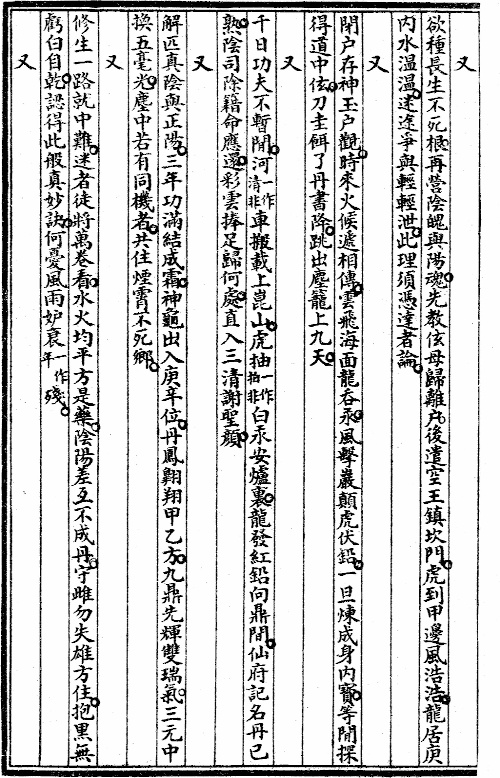 又
欲種長生不死根再營陰魄與陽魂先教佉母歸離戶後遣空王鎮坎門虎到甲邊風浩浩龍居庚
內水溫溫迷途爭與輕輕泄此理須憑達者論
又
閉戶存神玉戶觀時來火候遞相傳雲飛海面龍吞汞風擊巖顛虎伏鉛一旦煉成身內寶等閒探
得道中佉刀圭餌了丹書降跳出塵籠上九天
又
千日功夫不暫閒河一作清非車搬載上崑山虎抽一作拍非白汞安爐裏龍發紅鉛向鼎間仙府記名丹已
熟陰司除籍命應還彩雲捧足歸何處直入三清謝聖顏
又
解匹真陰與正陽三年功滿結成霜神龜出入庚辛位丹鳳翺翔甲乙方九鼎先輝雙瑞氣三元中
換五毫光塵中若有同機者共住煙霄不死鄉
又
修生一路就中難迷者徒將萬卷看水火均平方是藥陰陽差互不成丹守雌勿失雄方住抱黑無
虧白自乾認得此般真妙訣何憂風雨妒衰年一作殘